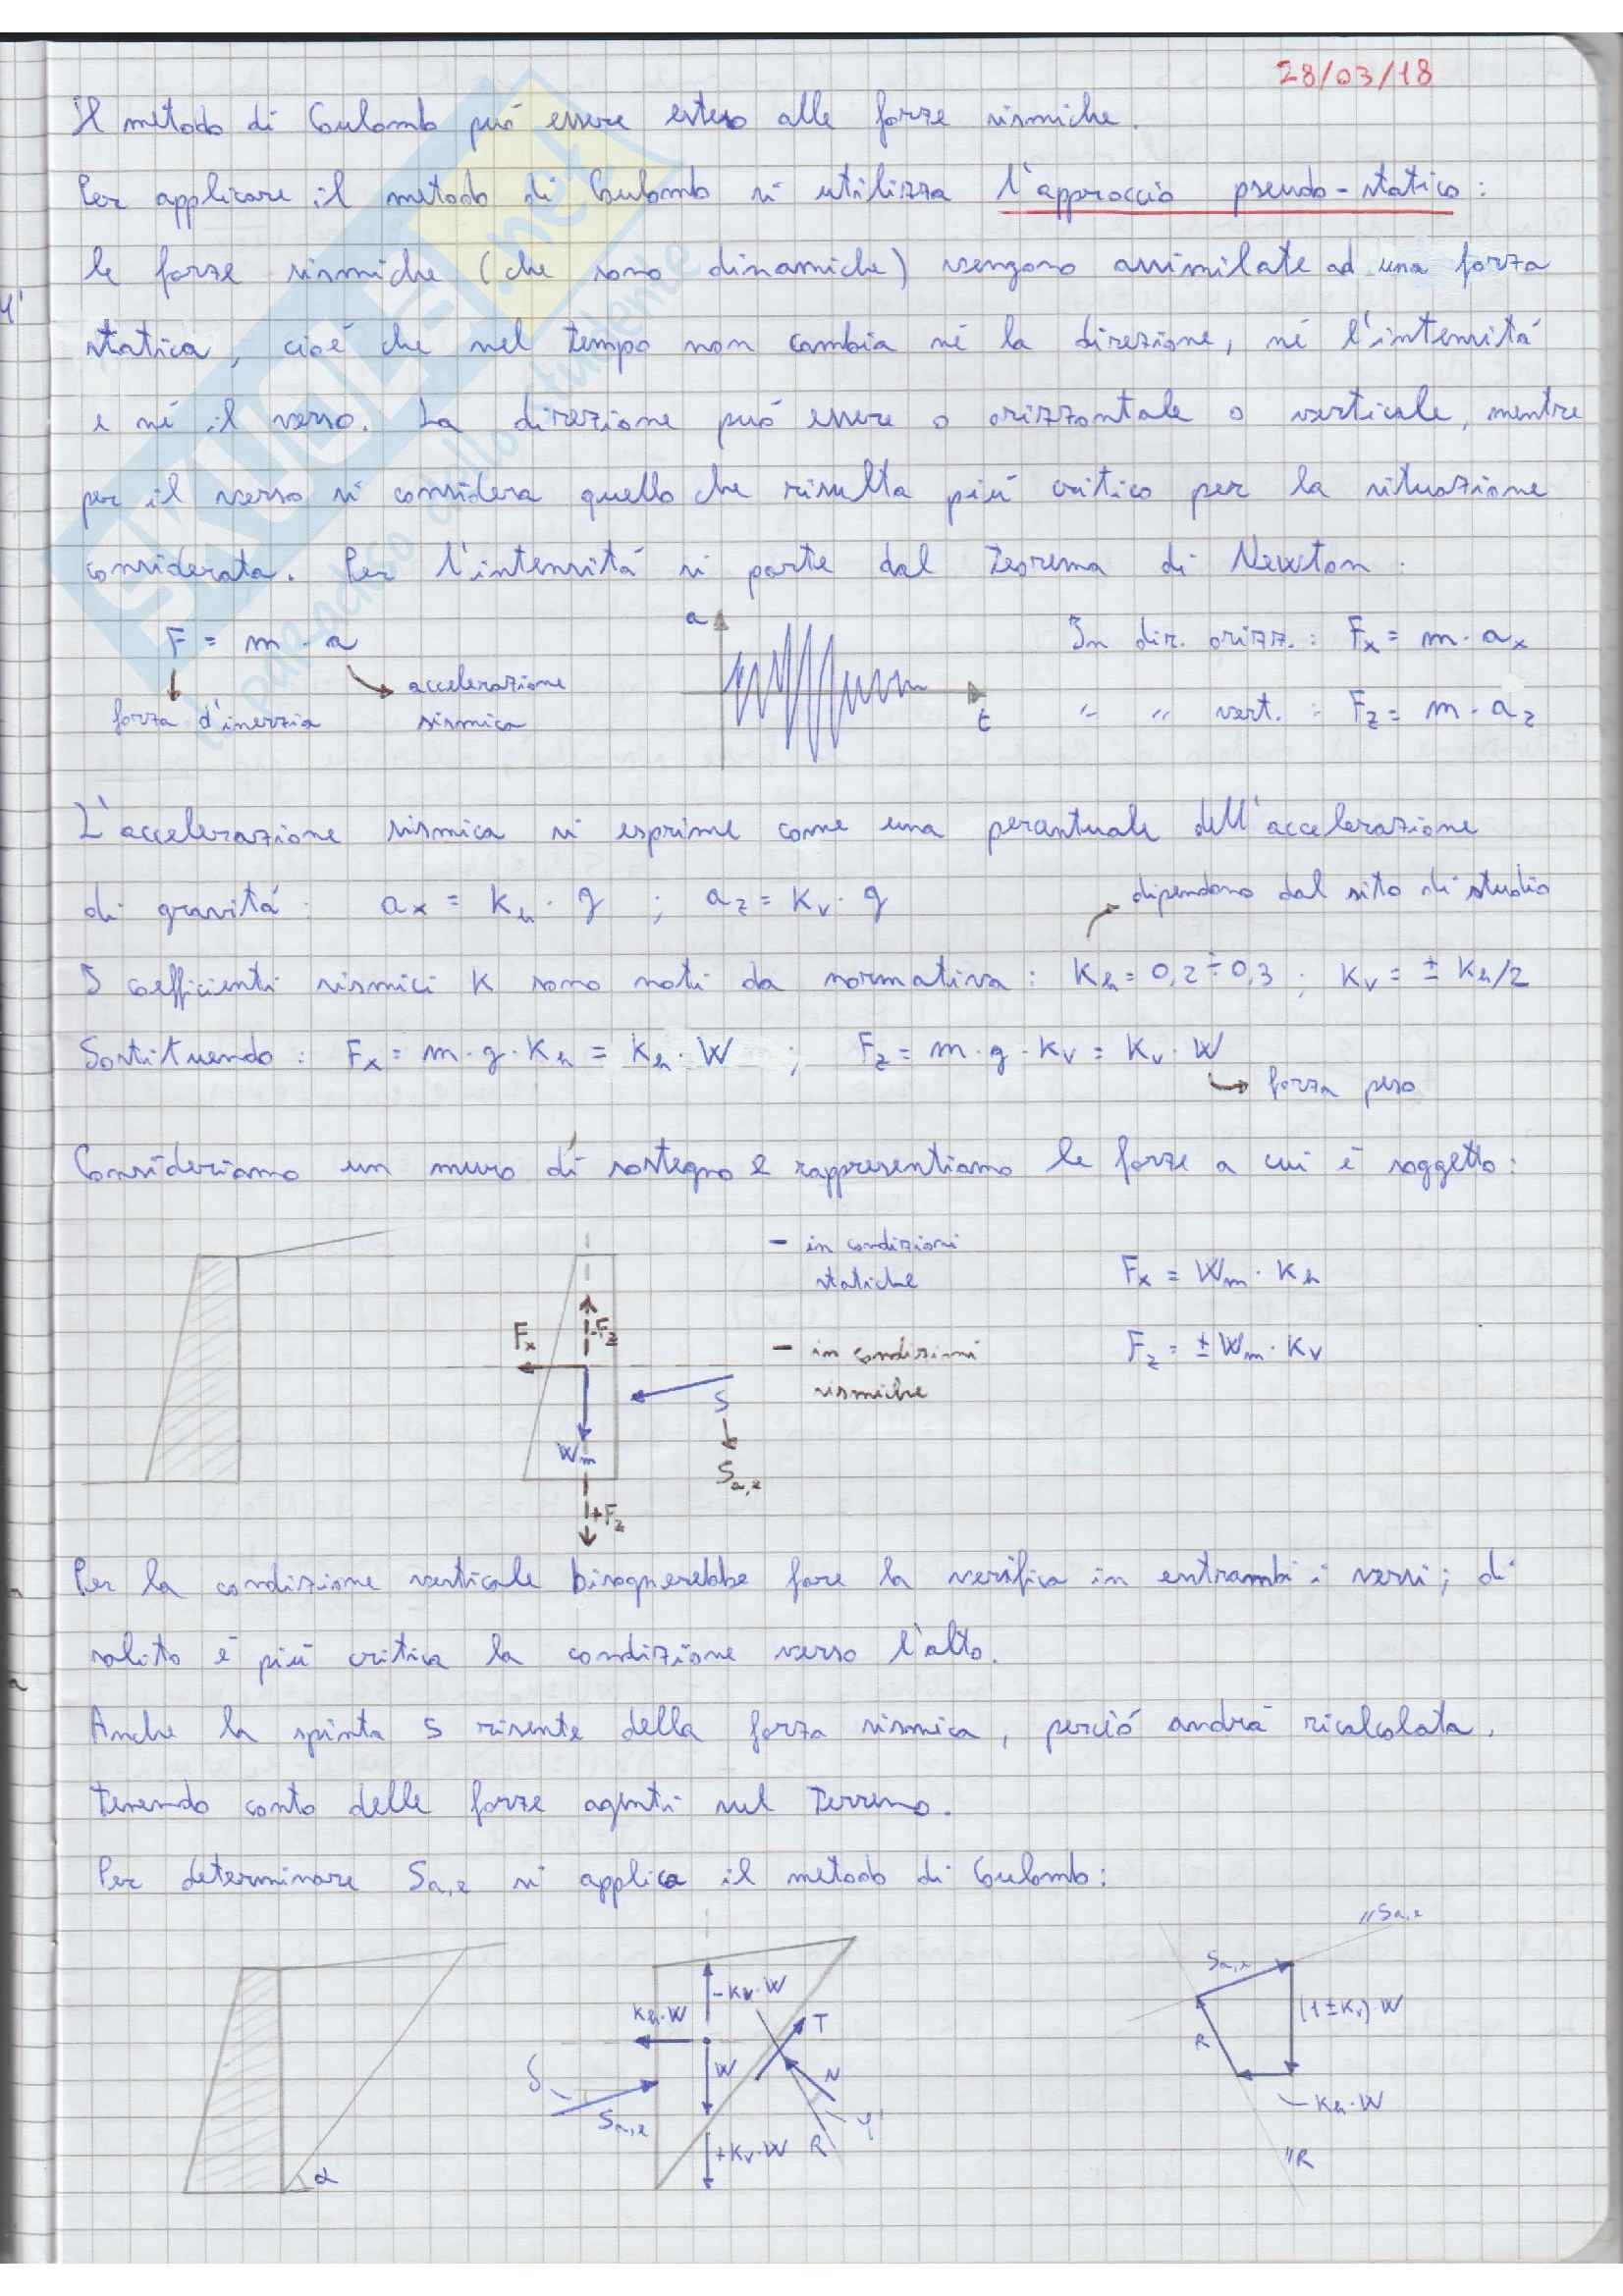 28/03/18
Il metodo di Coulomb può essere esteso alle forze sismiche.
Per applicare il metodo di Coulomb si utilizza l'approccio pseudo-statico:
le forze sismiche (che sono dinamiche) vengono assimilate ad una forza
statica, cioé che nel tempo non cambia né la direzione, né l'intensitá
e né il verso. La direzione puó essere o orizzontale o verticale, mentre
per il verso si considera quello che risulta piú critico per la situazione
considerata. Per l'intensitá si parte dal Teorema di Newton:
F = m · a
forza d'inerzia
accelerazione
sismica
a
t
In dir. orizz.: Fx = m · ax
" " vert. : Fz = m · az
L'accelerazione sismica si esprime come una percentuale dell'accelerazione
di gravitá: ax = Kh · g ; az = Kv · g
dipendono dal sito di studio
I coefficienti sismici K sono noti da normativa: Kh = 0,2÷0,3 ; Kv = ± Kh/2
Sostituendo: Fx = m · g · Kh = Kh · W ; Fz = m · g · Kv = Kv · W
forza peso
Consideriamo un muro di sostegno e rappresentiamo le forze a cui é soggetto:
- in condizioni
statiche
- in condizioni
sismiche
Fx = Wm · Kh
Fz = ± Wm · Kv
Fx
-Fz
Wm
+Fz
S
Sa,e
Per la condizione verticale bisognerebbe fare la verifica in entrambi i versi; di
solito é piú critica la condizione verso l'alto.
Anche la spinta S risente della forza sismica, perció andrá ricalcolata,
tenendo conto delle forze agenti sul terreno.
Per determinare Sa,e si applica il metodo di Coulomb:
α
-Kv·W
Kh·W
W
T
N
δ
Sa,e
+Kv·W
R
φ'
//Sa,e
Sa,e
(1±Kv)·W
R
Kh·W
//R
SKUOLA.net